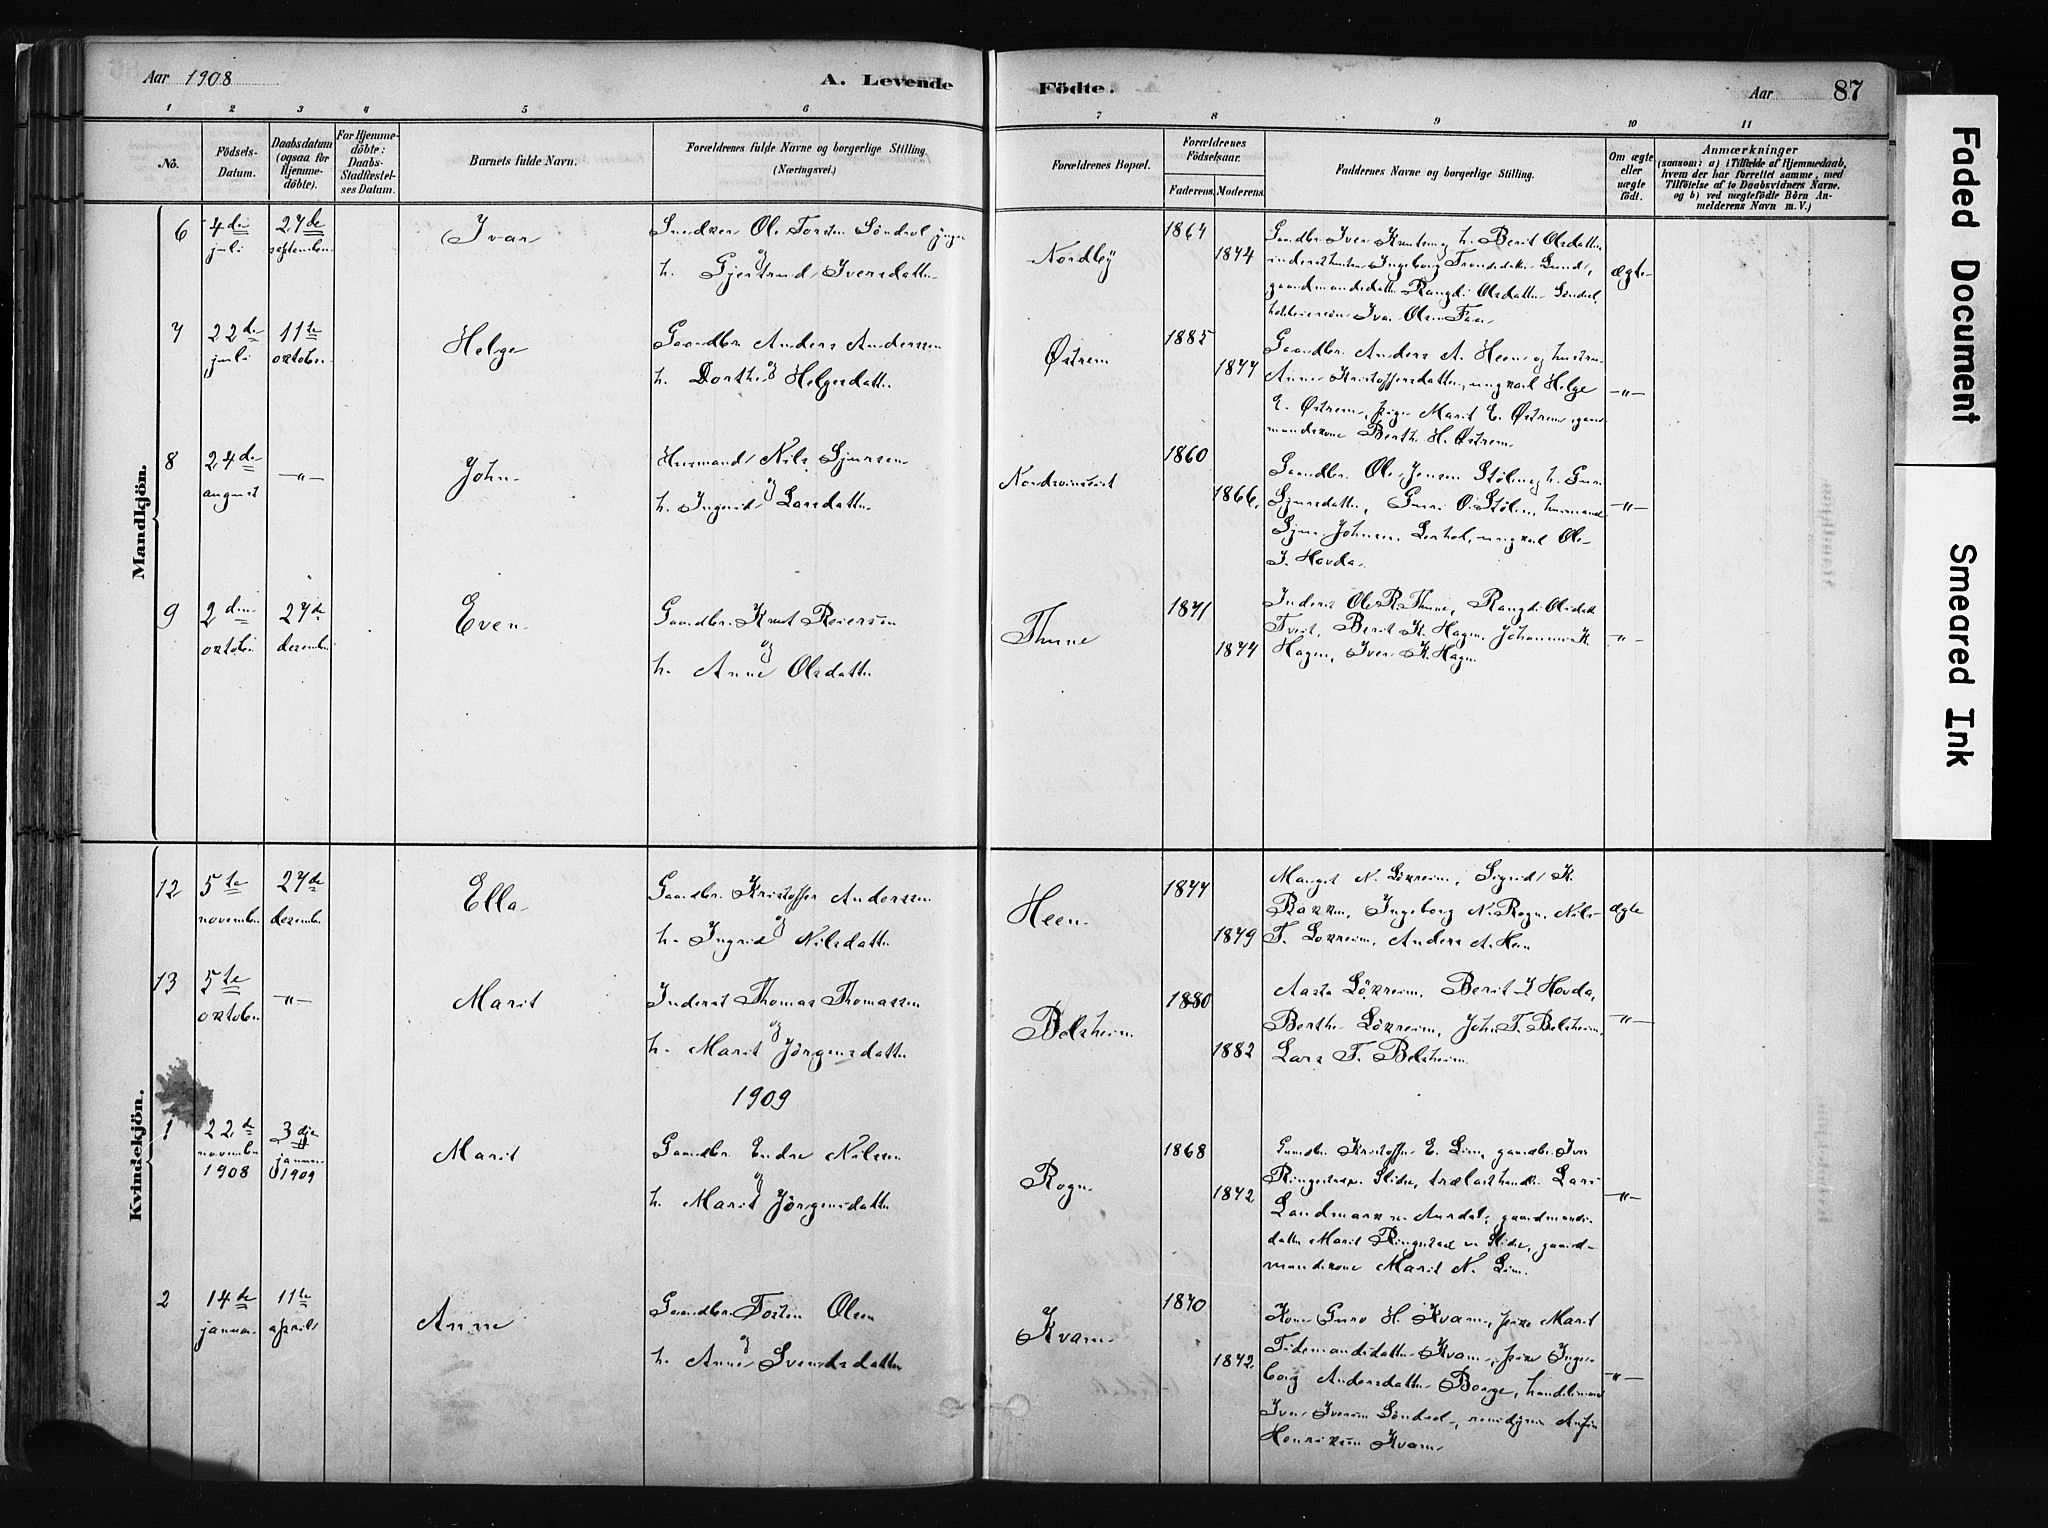 Aar 1908
A. Levende
Födte.
Aar
87
1 2 3 4 5 6 7 8 9 10 11
No.
Födsels-
Datum.
Daabsdatum
(ogsaa för
Hjemme-
döbte).
For Hjemme-
döbte:
Daabs-
Stadfæstel-
ses Datum.
Barnets fulde Navn.
Forældrenes fulde Navne og borgerlige Stilling.
(Næringsvei.)
Forældrenes Bopæl.
Forældrenes
Födselsaar.
Faderens. Moderens.
Faddernes Navne og borgerlige Stilling.
Om ægte
eller
uægte
födt.
Anmærkninger
(saasom: a) i Tilfælde af Hjemmedaab,
hvem der har forrettet samme, med
Tilföielse af to Daabsvidners Navne.
og b) ved uægtefödte Börn An-
melderens Navn m. V.)
Mandkjön.
6
4de
juli
27de
september
Ivar
og
h. Gjertrud Iversdatter
Nordby
1864
1874
ægte
7
22de
juli
11te
oktober
Helge
Gaardbr. Anders Anderssen
og
h. Dorthe Helgesdatter
Østrem
1885
1877
Gaardbr. Anders A. Heen og hustru
Anne Kristoffersdatter, ungkarl Helge
E. Østrem, pige Marit E. Østrem, gaard-
mandskone Berth. H. Østrem.
-"-
8
24de
august
-"-
John
Husmand Nils Sjurssen
og
h. Ingrid Larsdatter
1860
1866.
Gaardbr. Ole Jensen Stølen og h. Guri
Sjursdatter, Guri O. Stølen, husmand
Sjur Johnsen, ungkarl Ole
I. Hovda.
-"-
9
2den
oktober
27de
dezember
Even
Gaardbr. Knut Reiersen
og
h. Anne Olsdatter
Thune
1871
1877
Inderst Ole R. Thune, Rangdi Olsdatter
Tveit, Berit K. Hagen, Johannes K.
Hagen, Iver K. Hagen
-"-
Kvindekjön.
12
5te
november
27de
dezember
Ella
Gaardbr. Kristoffer Anderssen
og
h. Ingrid Nilsdatter
Heen
1877
1879
Margit N. Løkreim, Sigrid K.
Bakken, Ingeborg N. Rogn, Nils
T. Løkreim, Anders A. Heen
ægte
13
5te
oktober
-"-
Marit
Inderst Thomas Thomassen
og
h. Marit Jörgensdatter
Belsheim
1880
1882
Aasta Løkreim, Berit I Hovda,
Berthe Løkreim, John T. Belsheim,
Lars T. Belsheim
-"-
1909
1
22de
november
1908
3dje
januar
1909
Marit
Gaardbr. Endre Nilssen
og
h. Marit Jörgensdatter
Rogn
1868
1872
Gaardbr Kristoffer E. Lien, gaardbr. Iver
Ringestad Slidre, trælasthandler Lars
Landmark Aurdal, gaardmands-
datter Marit Ringestad Slidre, gaard-
mandskone Marit N. Lien.
-"-
2
14de
januar
11te
april
Anne
Gaardbr. Tosten Olsen
og
h. Anne Svendsdatter
Kvam
1870
1872
Kone Guro H. Kvam, pike Marit
Tidemandsdatter Kvam, pike Inge-
borg Andersdatter Borge, handelsmand
Iver Iversen Søndrol,
Henriksen Kvam
-"-
Faded Document
Smeared Ink